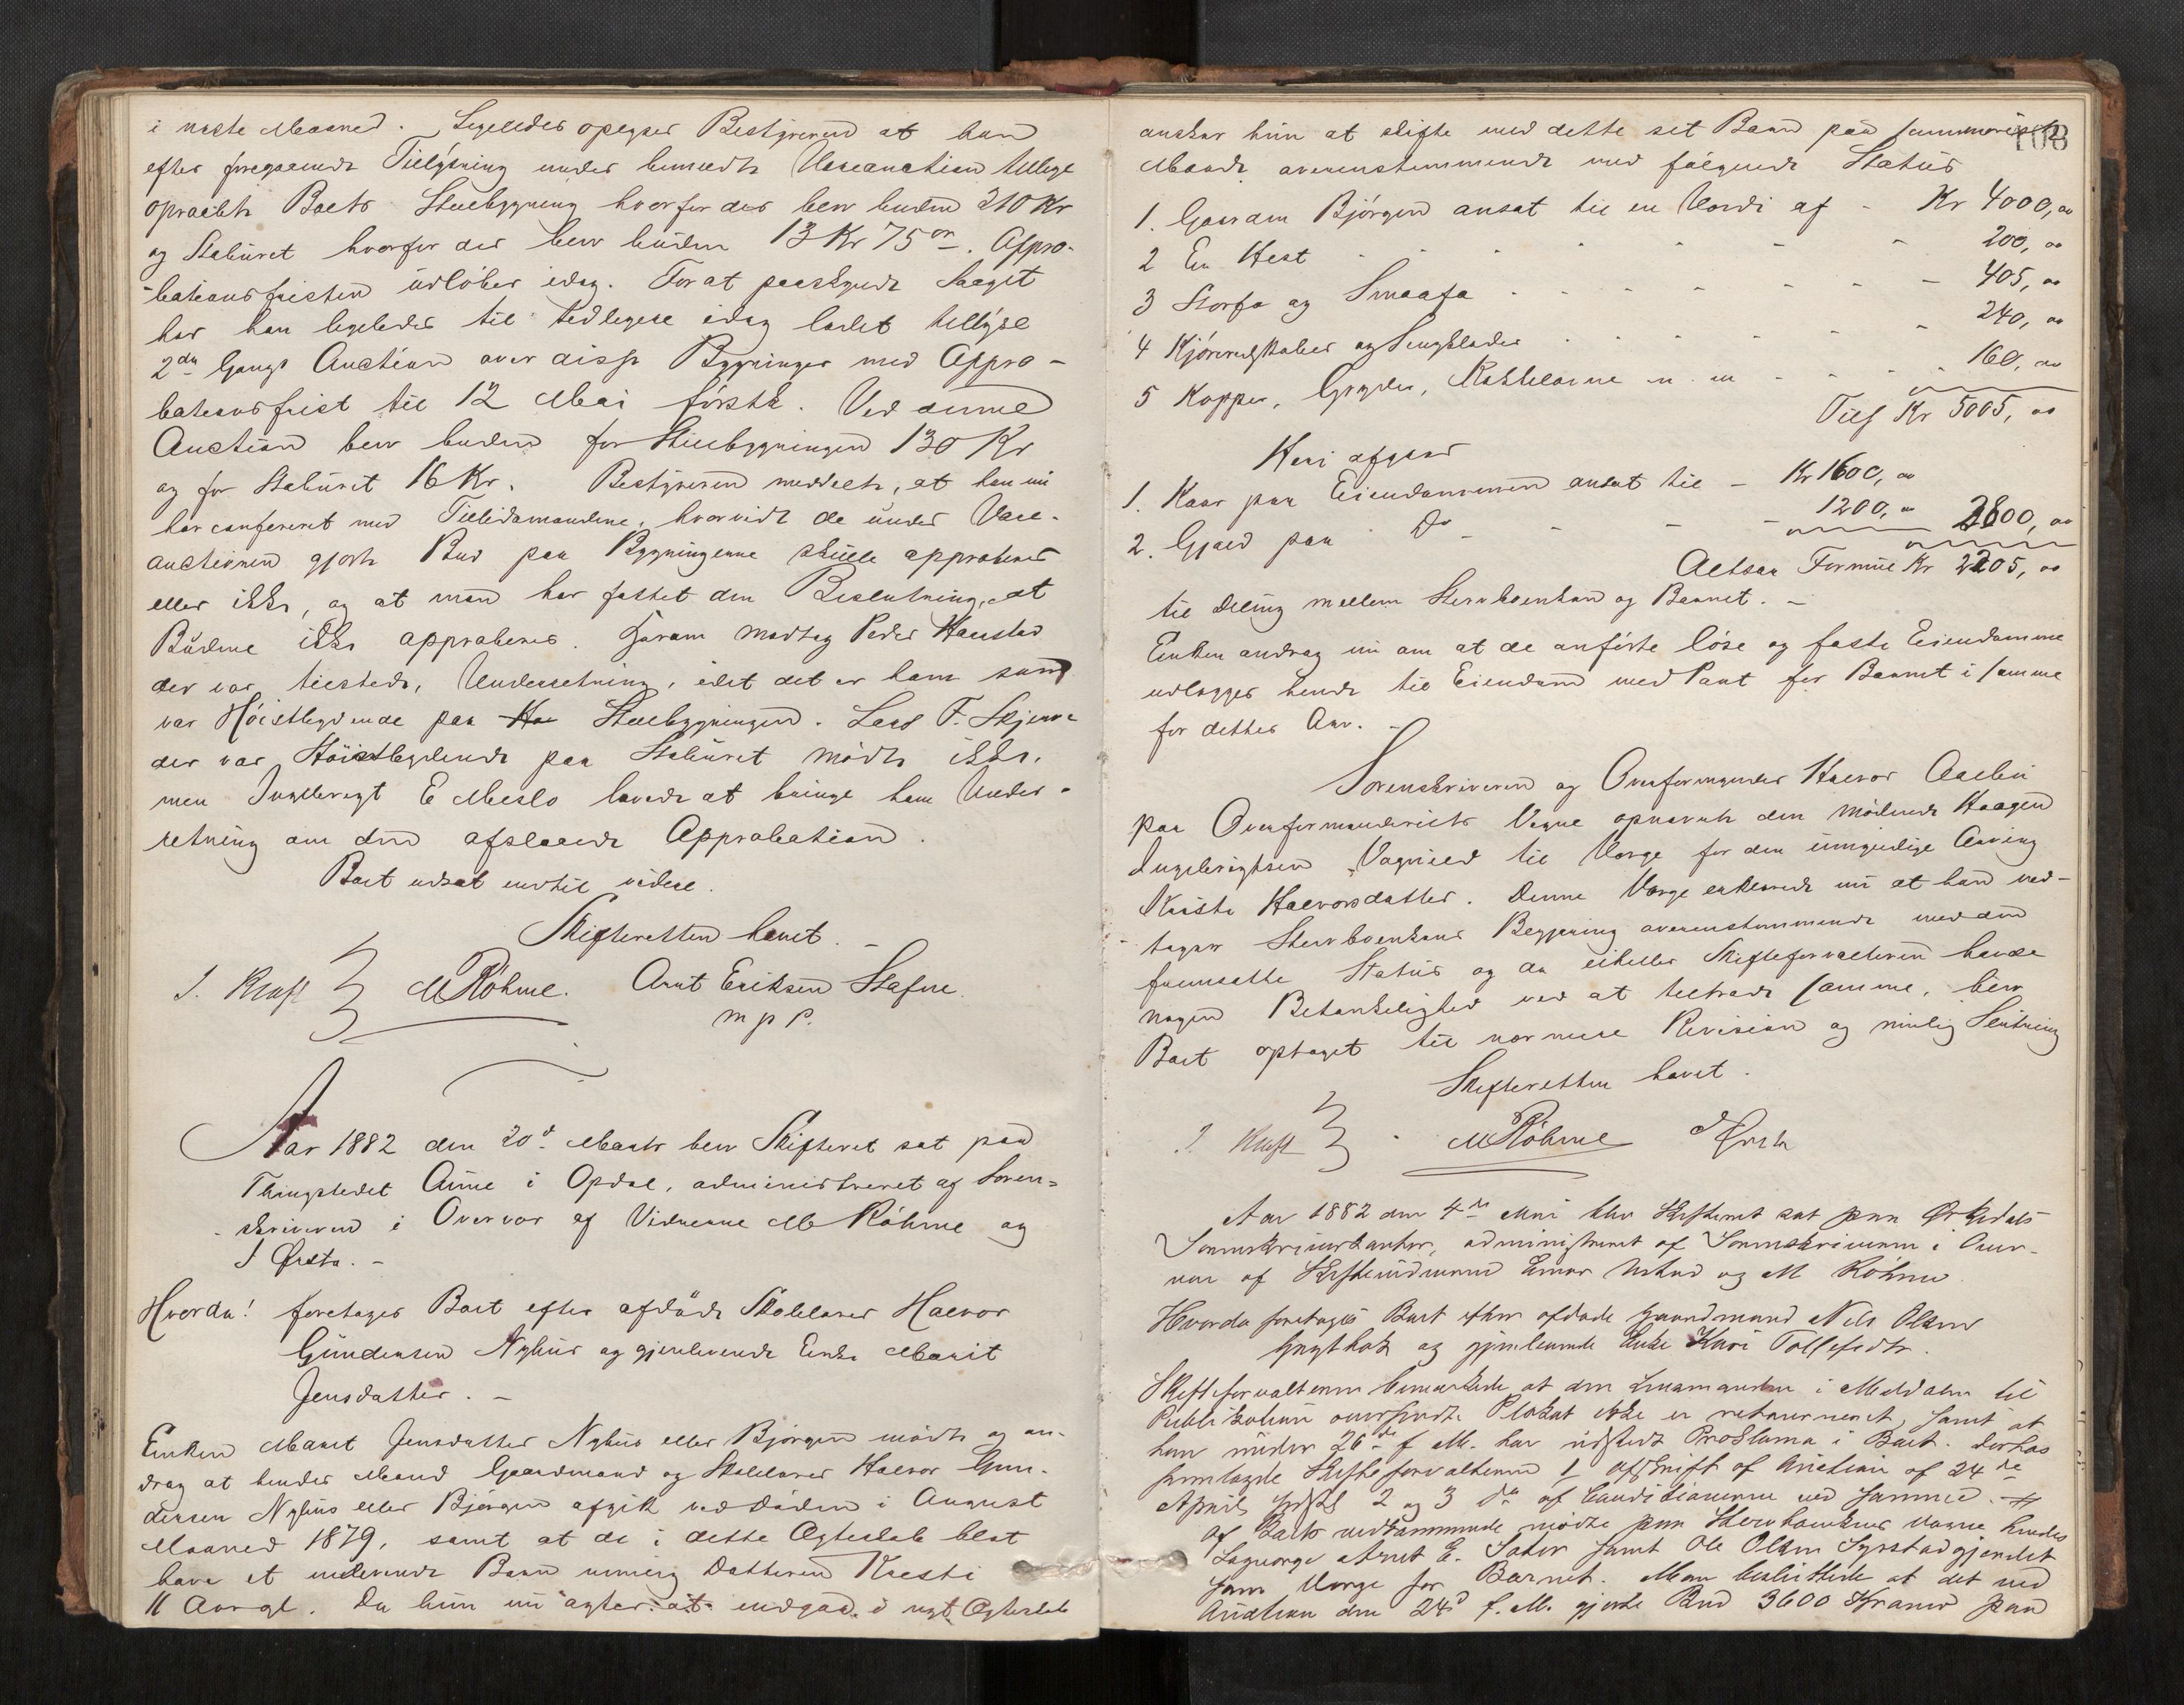 i næste Maaned. Ligeledes opgiver Bestyreren at han
efter foregaaende Tillysning under bemeldte Vareauction tillige
opraabte Boets Stuebygning hvorfor der blev buden 210 Kr
og Stabûret hvorfor der blev bûden 13 Kr 75 ør. Appro-
bationsfristen udlöber idag. For at paaskynde Saagt
har han ligeledes til Tidligere idag ladet tillyse
2den Gangs Auction over disse Bygninger med Appro-
bationsfrist til 12 Mai förstk. Ved denne
Auction blev buden for Stuebygningen 130 Kr
og for Stabûret 16 Kr. Bestyreren meddelte, at han nu
har confereret med Tillidsmændene, hvorvidt de ûnder Vare-
auctionen gjorte Bud paa Bygningerne skulle approberes
eller ikke, og at man har fattet den Beslutning, at
Bûdene ikke approberes. Herom modtog Peder Haustad
der var tilstede, Underretning, idet det er ham som
var Höistbydende paa Stuebygningen. Lars F. Skjerve
der var Höistbydende paa Stabûret mödte ikke.
men Ingebrigt E Meslo lovede at bringe ham Under-
retning om den afslaaede Approbation.
Boet udsat indtil videre.
Skifteretten hævet.
J. Kraft M Röhme. Arnt Eriksen Stafne.
m p P.
Aar 1882 den 20d Marts blev Skifteret sat paa
Thingstedet Aûne i Opdal, administreret af Soren-
skriveren i Overvær af Vidnerne M Röhme og
J Ørsta. -
Hvorda! foretages Boet efter afdöde Skolelærer Halvor
Gundersen Nyhus og gjenlevende Enke Marit
Jensdatter. -
Enken Marit Jensdatter Nyhus eller Bjørgen mödte og an-
drog at hendes Mand Gaardmand og Skolelærer Halvor Gun-
dersen Nyhus eller Bjørgen afgik ved döden i August
Maaned 1879, samt at de i dette Ægteskab blot
have et umyndigt Barn nemlig Datteren Kristi
11 Aar gl. Da hûn nu agter at indgaa i nyt Ægteskab
108
ønsker hûn at skifte med dette sit Barn paa summarisk
Maade overenstemmende med fölgende Status
1. Gaarden Bjørgen ansat til en Værdi af - Kr 4000,00
2 En Hest - 200,00
3 Storfæ og Smaafæ - 405,00
4 Kjöreredskaber og Sengklæder - 240,00
5 Kopper, Gryder, Kakkelovne m. m - 160,00
Tils Kr 5005,00
Heri afgaar
1. Kaar paa Eiendommen ansat til - Kr 1600,00
2. Gjæld paa Do - 1200,00 2800,00
Altsaa Formue Kr 2205,00
til Deling mellem Stervboenken og Barnet. -
Enken androg nu om at de anförte löse og faste Eiendomme
udlægges hende til Eiendom med Pant for Barnet i samme
for dettes Arv. -
Sorenskriveren og Overformynder Halvor Aalbu
paa Overformynderiets Vegne opnævnte den mödende Haagen
Ingebrigtsen Vognild til Værge for den umyndige Arving
Kristi Halvorsdatter. Denne Værge erklærede nu at han ved-
tager Stervboenkens Begjæring overensstemmende med den
fremsatte Status og da eiheller Skifteforvalteren havde
nogen Betænkelighed ved at tiltræde samme, blev
Boet optaget til nærmere Revision og mulig Slutning
Skifteretten hævet.
J. Kraft M Röhme J Ørsta
Aar 1882 den 4de Mai blev Skifteret sat paa Ørkedals
Sorenskriverkontor, administreret af Sorenskriveren i Over-
vær af Skiftevidnerne Einar og M Röhme.
Hvorda foretages Boet efter afdöde Gaardmand Nils Olsen
Grythak og gjenlevende Enke Kari Tollefsdtr.
Skifteforvalteren bemærkede at den Lensmanden i Meldalen til
Publikation oversendte Plakat ikke er returneret, samt at
han ûnder 26de f M. har udstedt Proklama i Boet. Derhos
fremlagde Skifteforvalteren 1 Afskrift af Auction af 24de
April sidstl 2 og 3 do af Conditionerne ved samme. -
Af Boets vedkommende mödte paa Stervboenkens Vegne hendes
Lagværge Arnt E. Sæter samt Ole Olsen Syrstadgjerdet
som Værge for Barnet. Man besluttede at det ved
Auction den 24d f. M. gjorte Bud 3600 Kroner paa